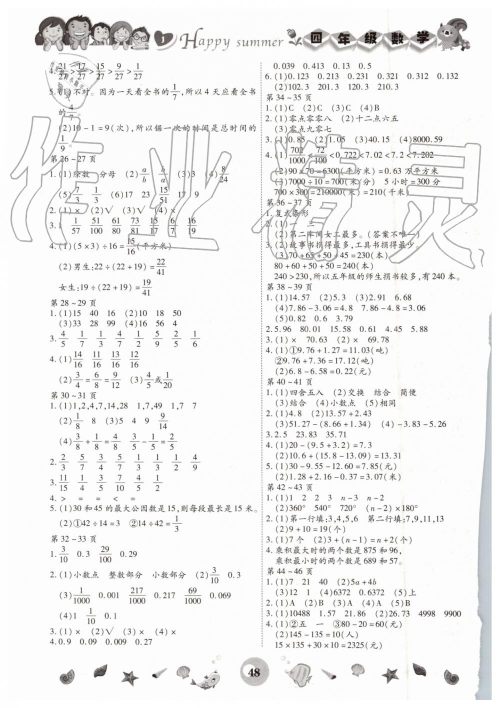 Happy summer
四年级数学
4. 21/27>17/27>15/27>9/27>1/27
5. (1)不对。因为一天看全书的1/7,所以4天应看全书
(2)10-1=9(次),所以锯一次的时间是总时间的
1/9。
第26~27页
(6)17 23 15/51 17 9
2. (1)× (2)√ (3)√ (4)×
4. (1)(5×3)÷16=15/16(平方米)
(2)男生:22÷(22+19)=22/41
女生:19÷(22+19)=19/41
第28~29页
1. (1)15 40 16 (2)10 18 50
(3)33 28 99 (4)16 56 4
3. 4/5 1/7 1/3 4/7 1/2 5/9 2/5 1/6
4. (1)14/16 11/16 13/16 12/16
(2)3/4=6/8=9/12 (3)4/5或1/20
第30~31页
1. (1)1,2,4,7,14,28 1,7,49 1,7 7
(2)1/8 8 (3)5 4 9 9/14
(4)3/8+1/8=4/8 3/5-1/5=2/5
2. 2/3 5/7 3/4 5/7 1/3 1/3 1/4 4/9
3. 11/15 1/4 3/5 7/10 4/5 1/2
4. > = = < =
5. (1)30和45的最大公因数是15,则每段最长是15米。
(2)①42÷14=3 ②14÷42=1/3
第32~33页
1. 3/10 0.3 29/100 0.29
2. (1)小数点 整数部分 小数部分 (2)3/10 0.3
(3)1/1000 0.001 217/1000 0.217 69/1000 0.069
(4)1 1/10 0.1
3. (1)× (2)√ (3)× (4)×
4. 0.9 0.09 0.009 0.27
0.039 0.413 0.13 0.5
6. (1)0.123 0.213 0.231 0.321 0.312 0.132
(2)102.3 201.3 120.3 210.3
第34~35页
1. (1)C (2)C (3)C (4)B
2. (1)零点零零八 (2)十二点六五
(3)零点九零七
3. (1)0.85 (2)1.05 (3)40.15 (4)8000.59
4. (1)702/1000<72/100<0.722<7.02<7.2<7.202
(2)90×70=6300(平方米)=0.63万平方米
(3)7000÷10=700(米/分) 5小时=300分
700×300=210000(米)=210(千米)
第36~37页
1. 复式条形
(2)第二车间女工最多。(答案不唯一)
3. (2)故事书捐得最多,工具书捐得最少。
(3)70+65+50+45=230(本)
80+60+50+50=240(本)
240>230,所以五年级的师生捐书较多,有240本。
第38~39页
1. (1)14.57 (2)5.3 (3)2.91 6.68
(4)7.86-3.06=4.8 7.86-4.8=3.06
(5)0.82 0.6 3.79
2. 5.96 80.01 15.58 0.61 4.45 5.88
3. (1)× 70.63 (2)× 69.78
4. (1)①9.76+1.27=11.03(吨)
②9.76+7.36=17.12(吨)
(2)6.8-6.58=0.22(元)
第40~41页
1. (1)四舍五入 (2)交换 结合 简便
(3)结合 (4)小数点 (5)相同
2. (1)4.8 (2)13.57+2.43
(3)51.27-(8.66+1.34) (4)-3.83-5.26
3. 2.5 23.83 35.71
4. (1)20-(9.5+3.2)=7.3
(2)10.6+(15.8-13.09)=13.31
5. (1)30-9.55-12.60=7.85(元)
(2)1.28+2.16-0.37=3.07(米)
第42~43页
1. (1)1 2 2 3 n-3 n-2
(2)360° 540° 720° (n-2)×180°
2. (1)第一行填:3,4,5,6 第二行填:7,9,11,13
(2)9+10=19(个)
3. (1)7个 (2)3+(n-1)=n+2(个)
4. 乘积最大时的两个数是875和96,
乘积最小时的两个数是689和57。
第44~46页
1. (1)7 21 40 (2)5a+4b
(3)12 12 (4)6372 0.6372 (5)上
2. (1)A (2)B (3)A (4)A (5)B
3. (1)10488 1.57 21.86 (2)26.73 4998 9900
4. (1)②五 一 ③80-20=60(元)
(2)145-135=10(人)
15×135+30×10=2325(元)
48
作业精灵